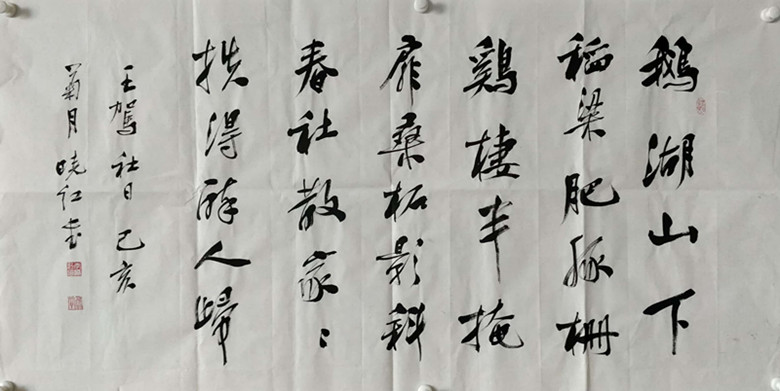 鹅湖山下
稻粱肥豚栅
鷄棲半掩
扉桑柘影斜
春社散家〻
扶得醉人歸
王驾社日己亥
菊月晓红书